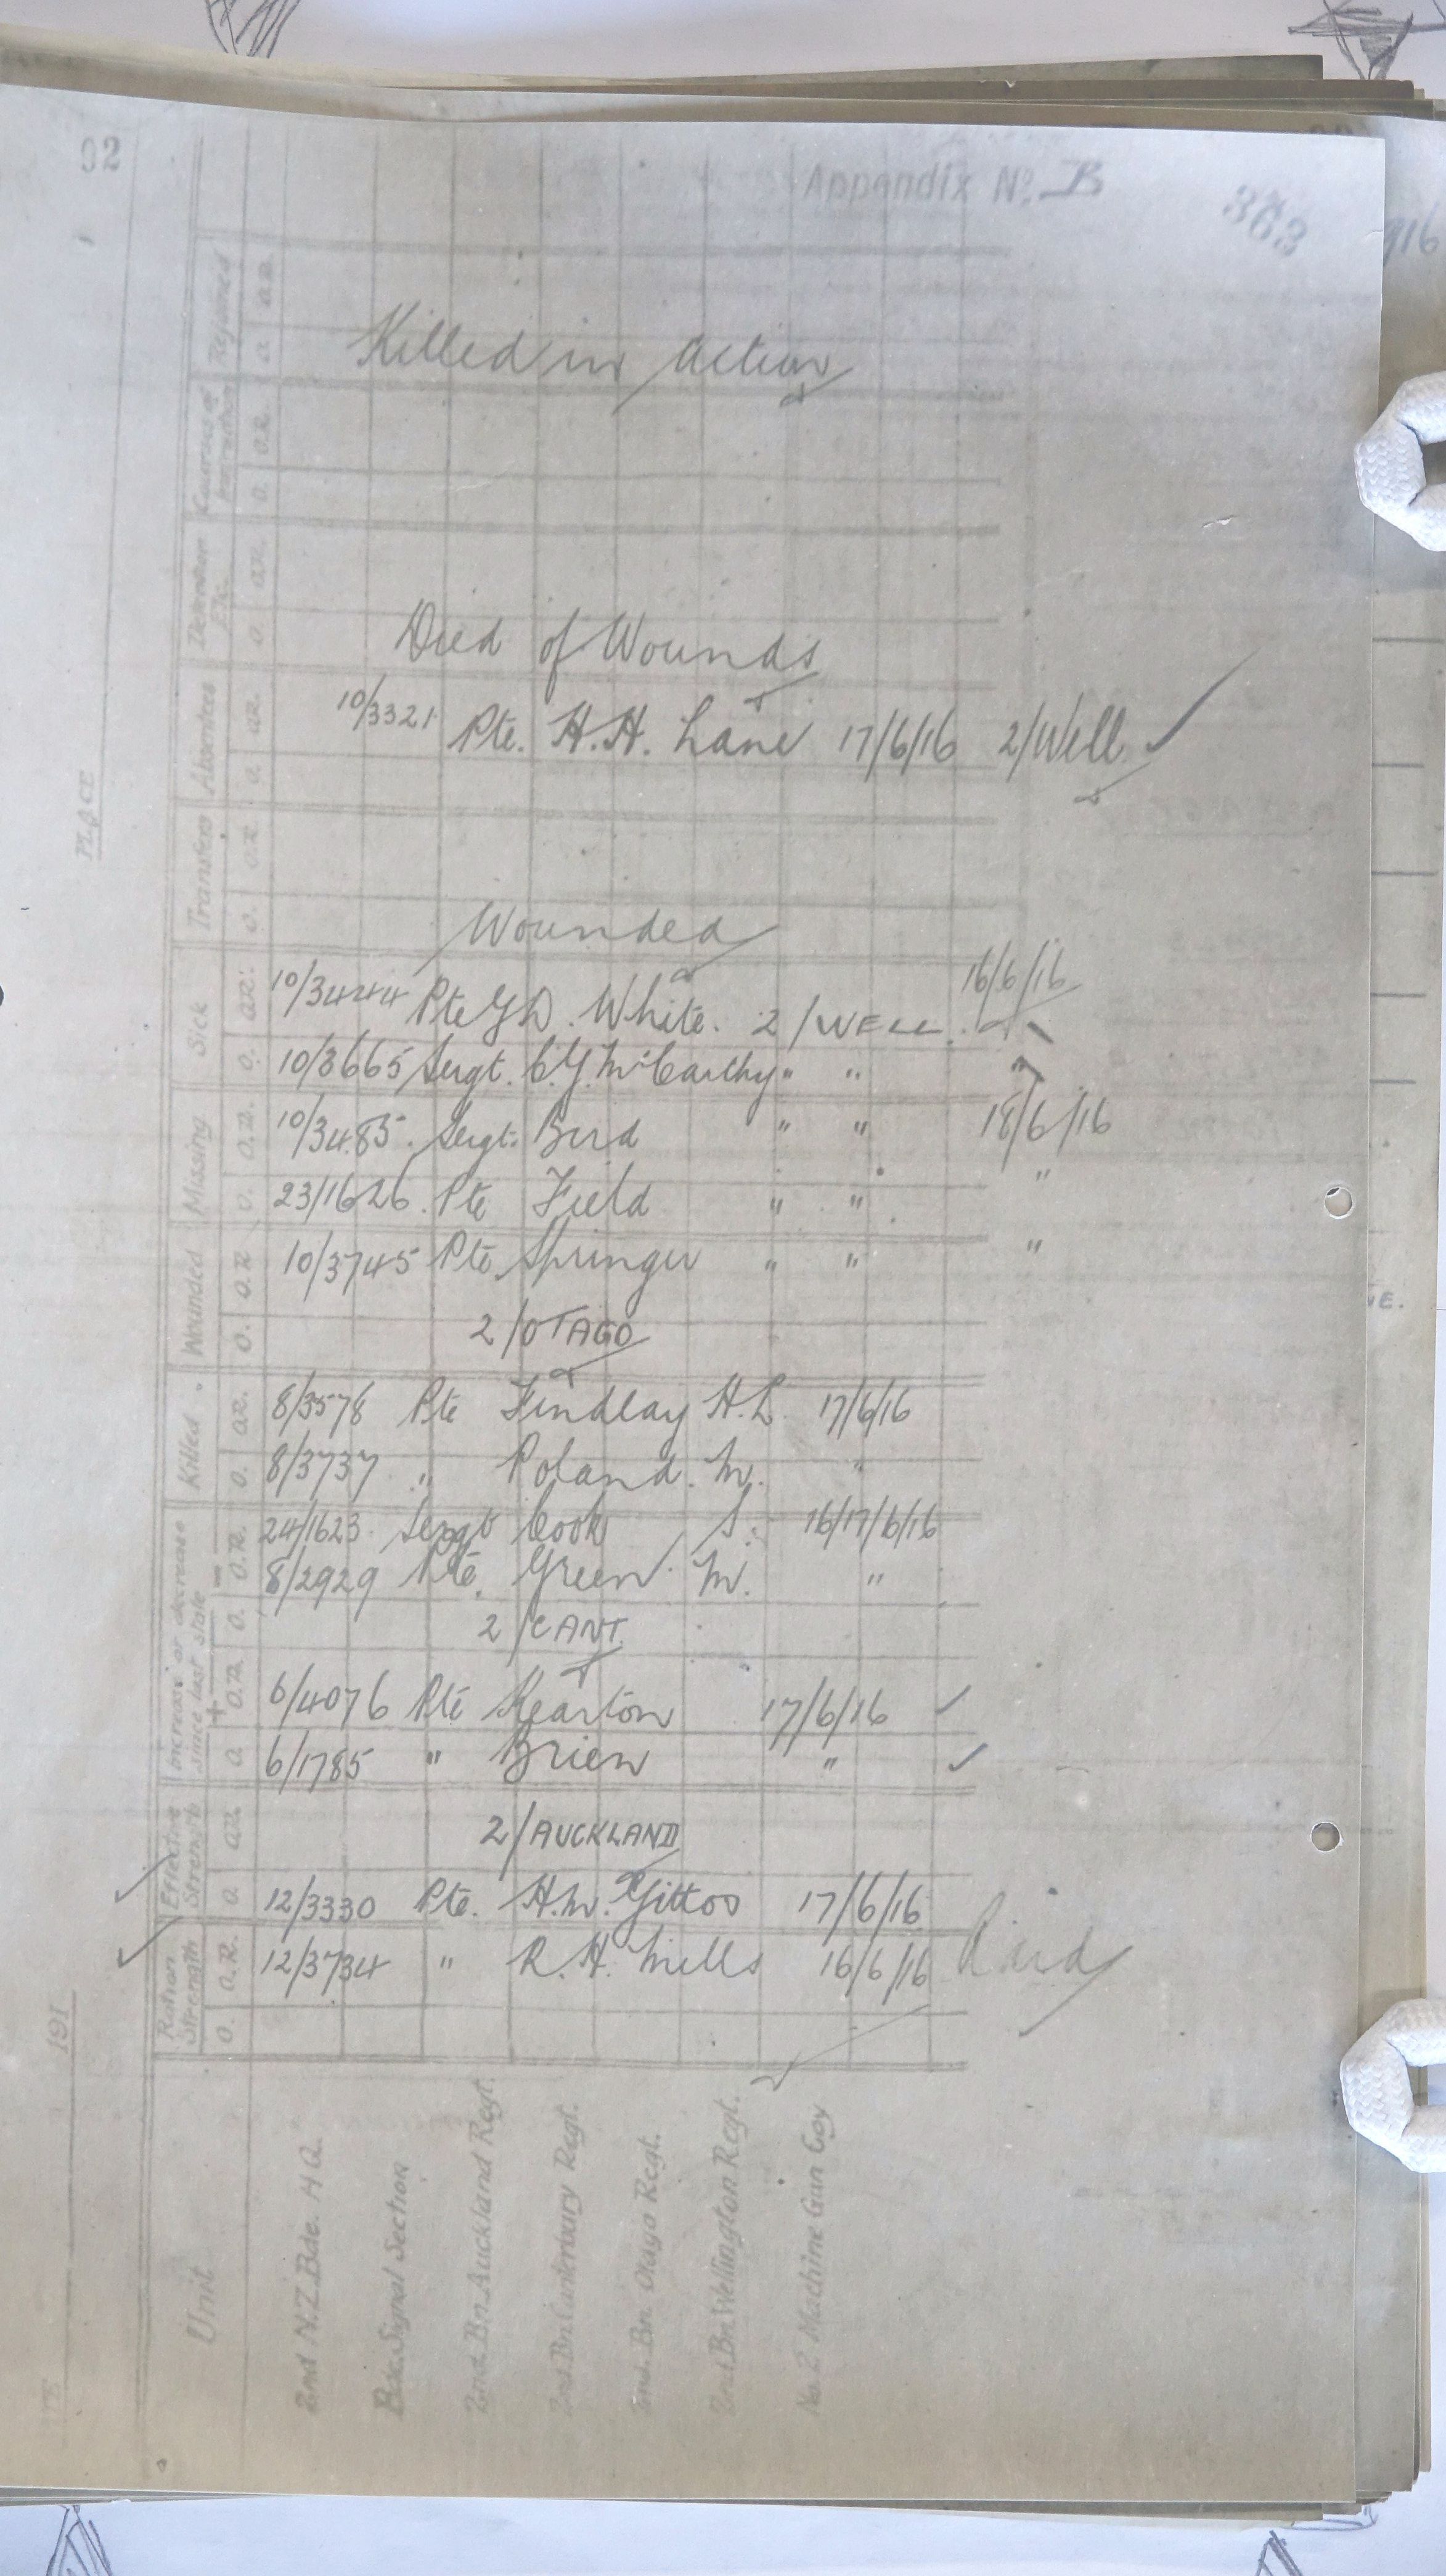 Appendix No. B
363
92
916
Killed in Action
Died of Wounds
10/3321 Pte. H.H. Lane 17/6/16 2/Well ✓
Wounded
10/3444 Pte G D. White. 2/WELL. 16/6/16
10/3665 Sergt. C.G. McCarthy " " "
10/3485. Sergt. Bird " " 18/6/16
23/1626. Pte Field " " "
10/3745 Pte Springer " " "
2/OTAGO
8/3578 Pte Findlay H.L. 17/6/16
8/3737 " Poland. M. "
24/1623 Sergt Cook S. 16/17/6/16
8/2929 Pte. Green M. "
2/CANT.
6/4076 Pte Kearton 17/6/16 ✓
6/1785 " Brien " ✓
2/AUCKLAND
12/3330 Pte. H.W. Gittos 17/6/16
12/3734 " R.H. Mills 16/6/16
PLACE
191
Unit
Ration Strength
Effective Strength
Increase or decrease since last state
+ -
Killed
Wounded
Missing
Sick
Transfers
Absentees
Detention Etc.
Rejoined
O. O.R. O. O.R. O. O.R. O. O.R. O. O.R. O. O.R. O. O.R. O. O.R. O. O.R. O. O.R. O. O.R. O. O.R. O. O.R.
2nd N.Z. Bde. H.Q.
Bde. Signal Section
2nd. Bn. Auckland Regt.
2nd. Bn. Canterbury Regt.
2nd. Bn. Otago Regt.
2nd. Bn. Wellington Regt.
No. 2 Machine Gun Coy